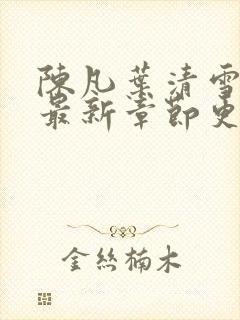 陳凡葉清雪
最新章節更
金絲楠木